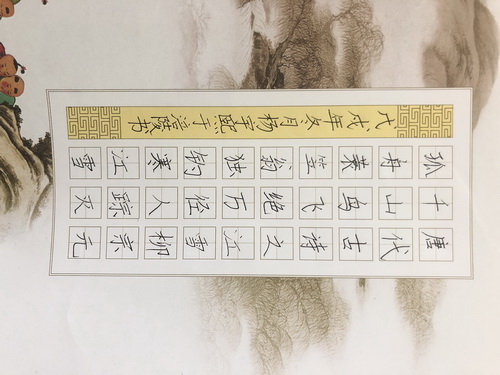 唐代古诗之江雪柳宗元
千山鸟飞绝万径人踪灭
孤舟蓑笠翁独钓寒江雪
戊戌年冬月杨宇瓯于涪陵书